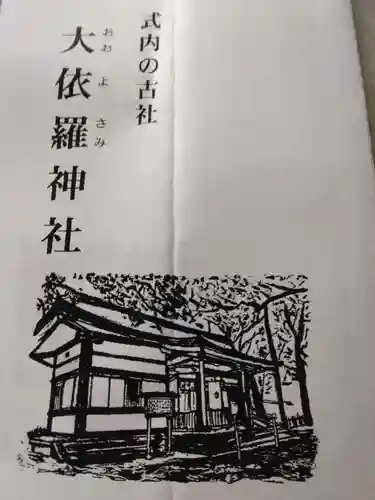 式内の古社
大依羅神社
おおよさみ